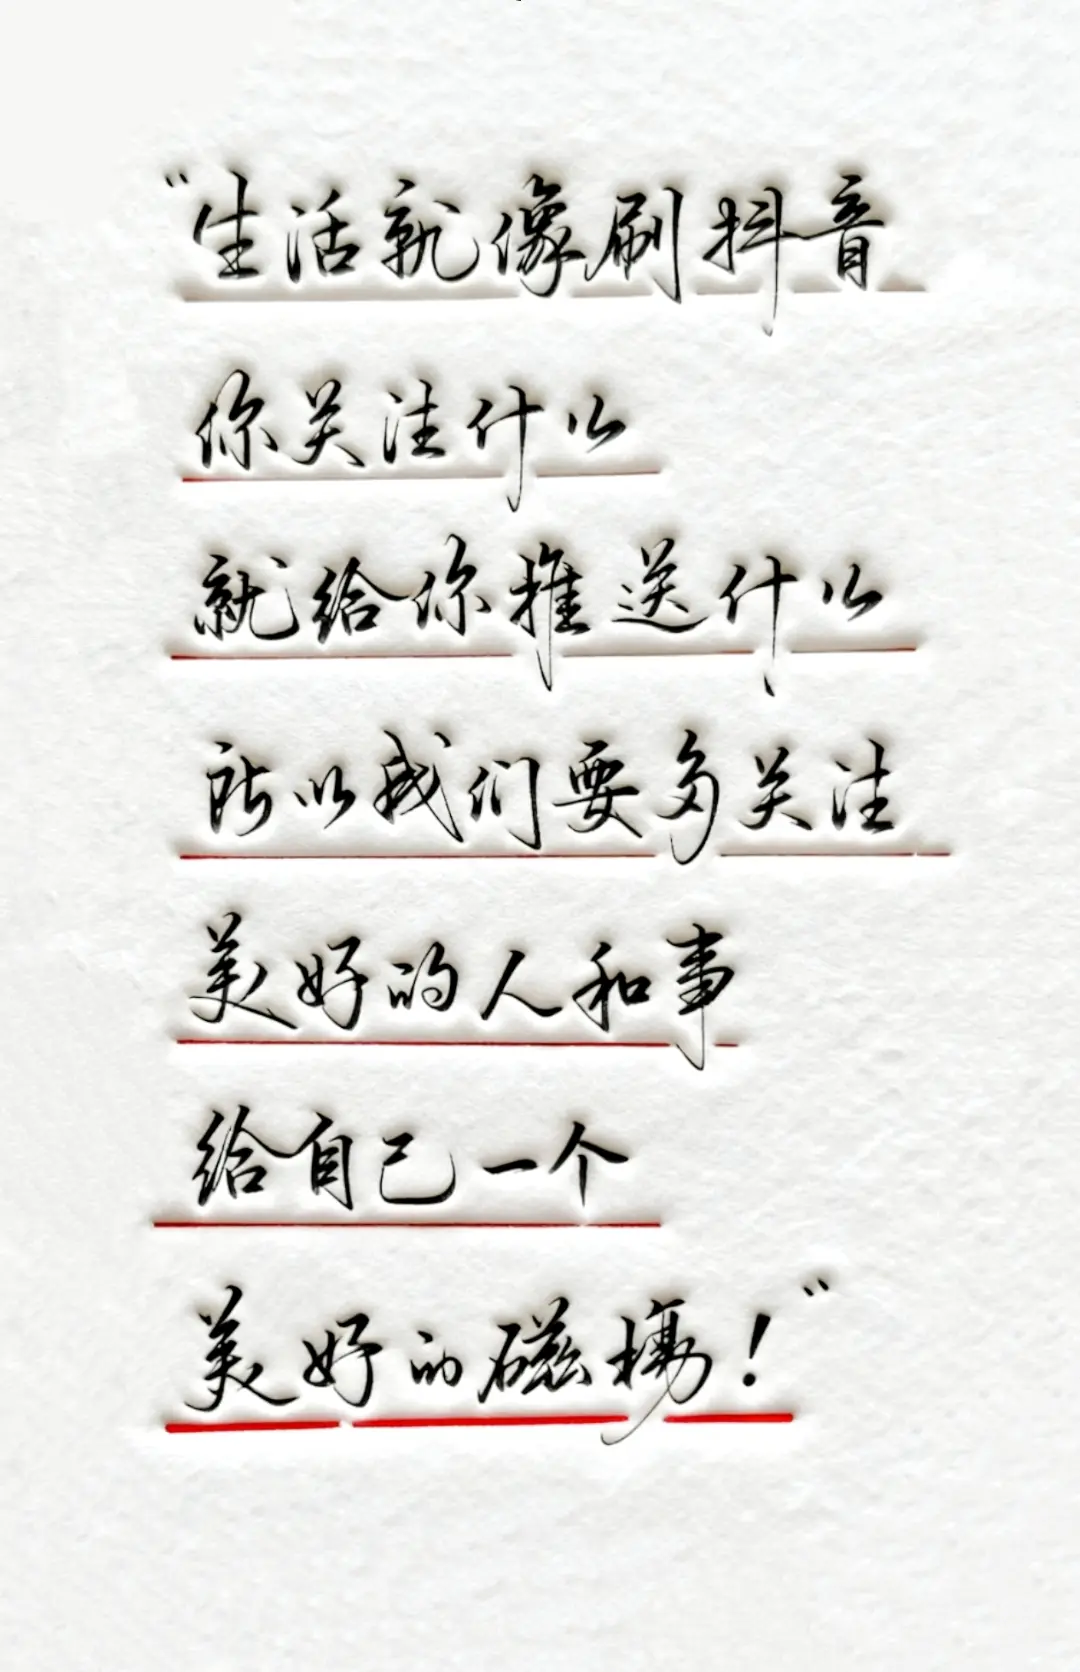 “生活就像刷抖音
你关注什么
就给你推送什么
所以我们要多关注
美好的人和事
给自己一个
美好的磁场！”